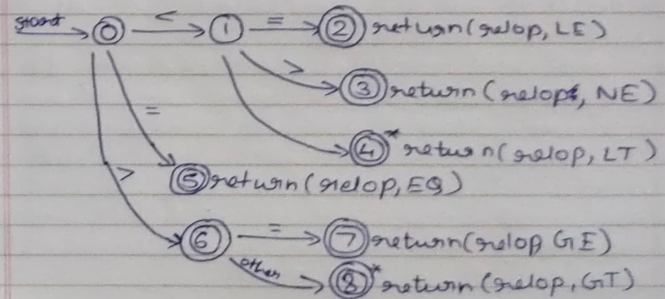 start 0 < 1 = 2 return(relop, LE)
> 3 return(relop, NE)
= 4 * return(relop, LT)
> 5 return(relop, EQ)
6 = 7 return(relop GE)
other 8 * return(relop, GT)